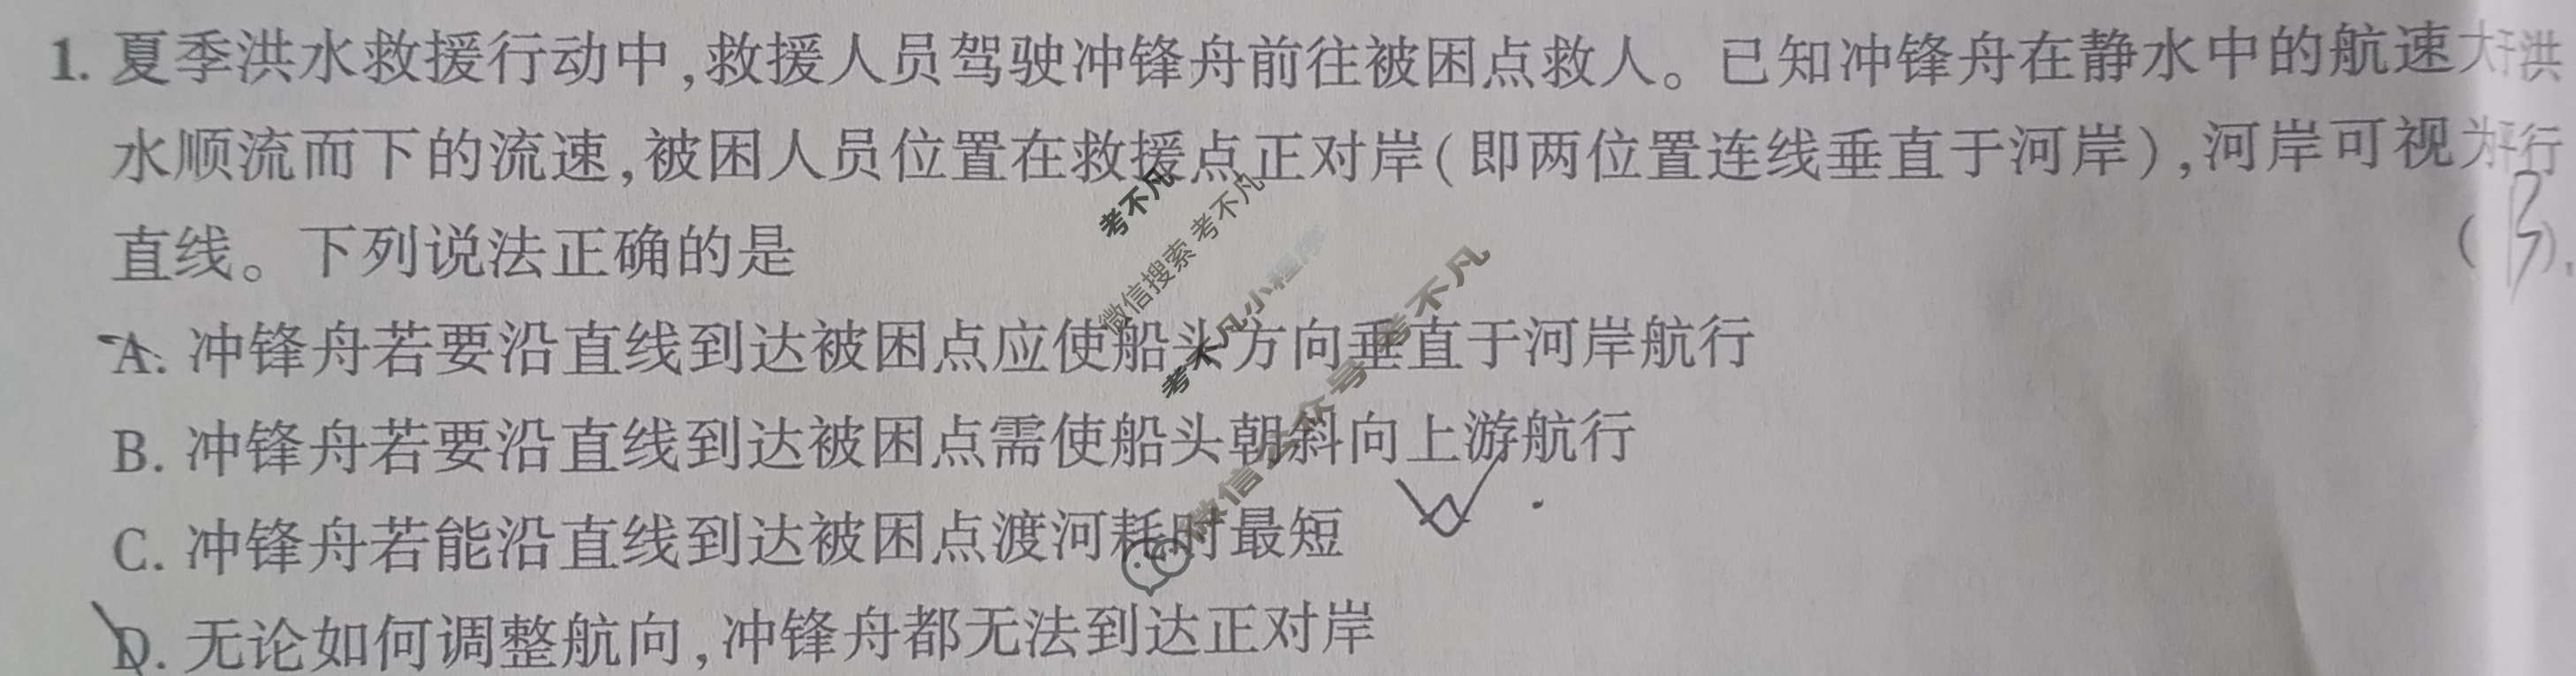 1. 夏季洪水救援行动中,救援人员驾驶冲锋舟前往被困点救人。已知冲锋舟在静水中的航速大于洪
水顺流而下的流速,被困人员位置在救援点正对岸(即两位置连线垂直于河岸),河岸可视为平行
直线。下列说法正确的是 ( B )
A. 冲锋舟若要沿直线到达被困点应使船头方向垂直于河岸航行
B. 冲锋舟若要沿直线到达被困点需使船头朝斜向上游航行
C. 冲锋舟若能沿直线到达被困点渡河耗时最短
D. 无论如何调整航向,冲锋舟都无法到达正对岸
考不凡
微信搜索 考不凡
考不凡小程序
微信公众号 考不凡